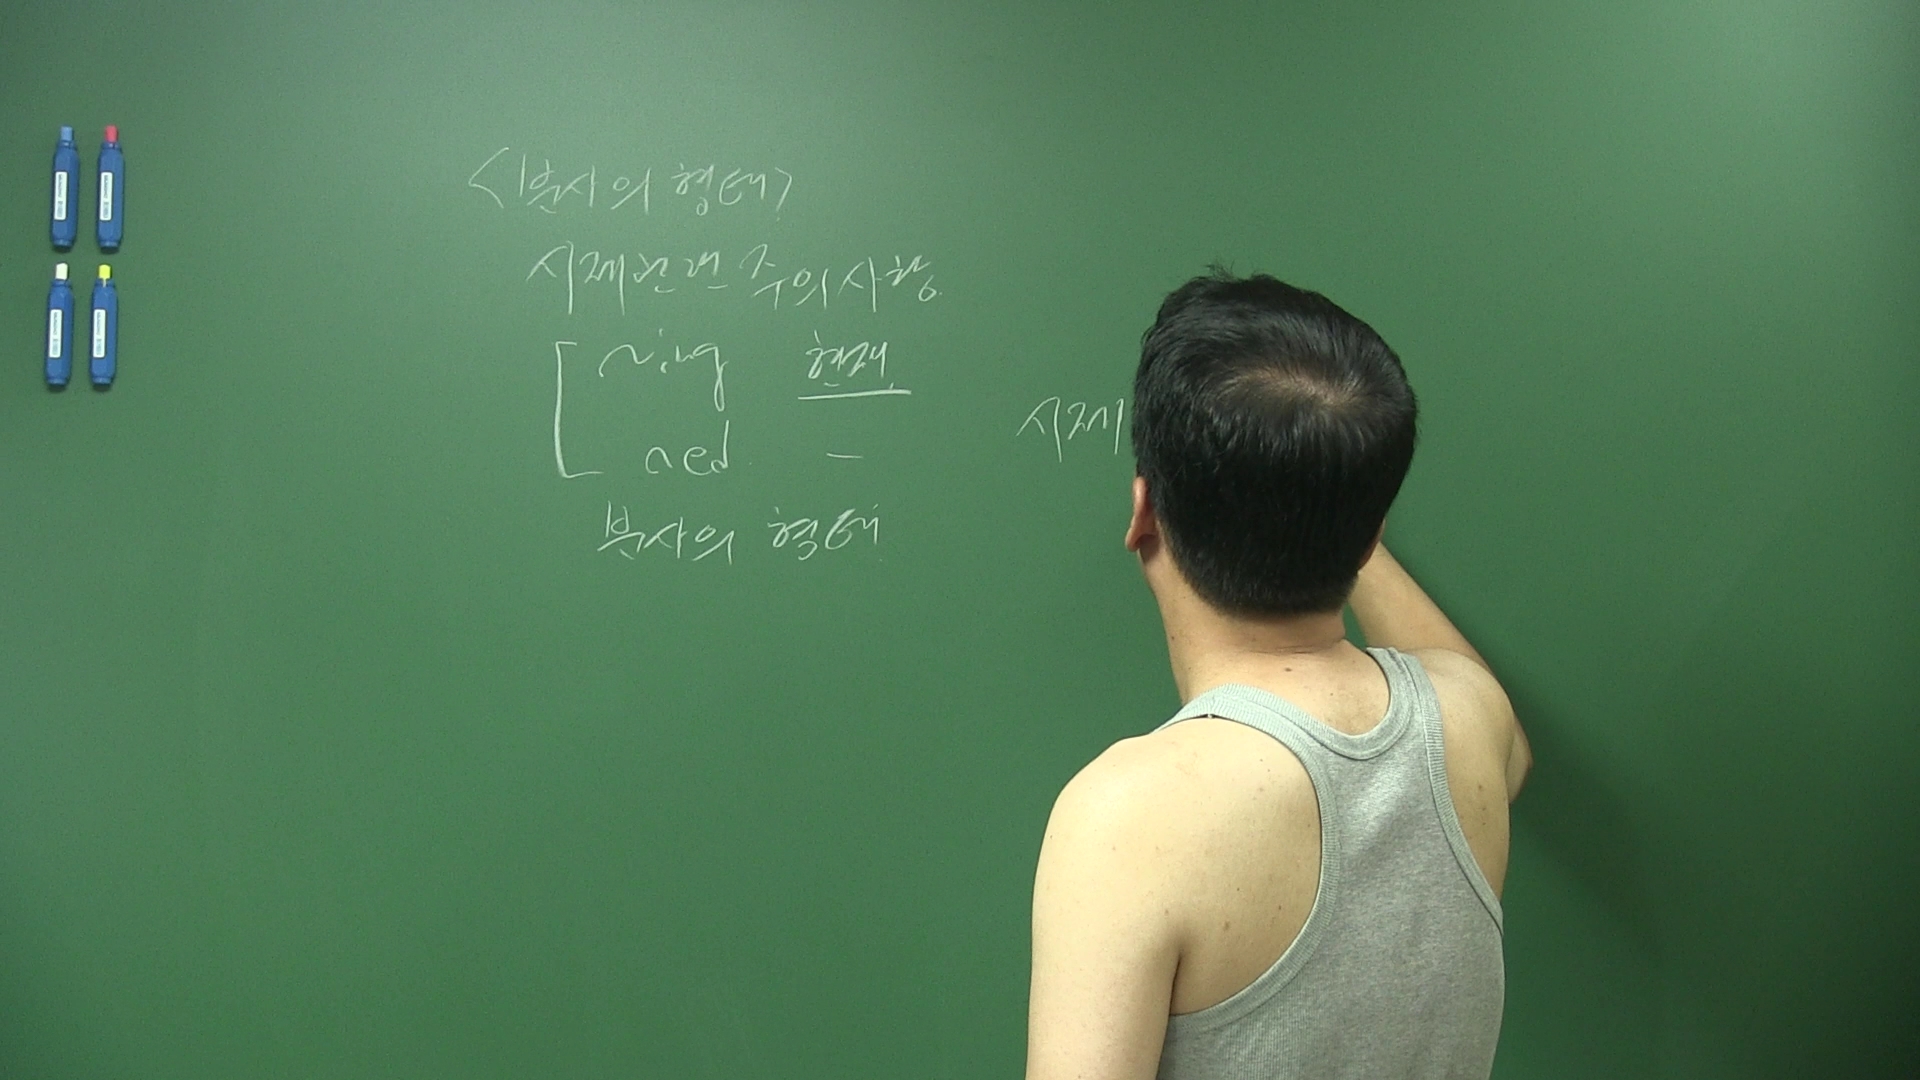 <분사의 형태>
시제관련 주의사항.
~ing 현재
~ed –
시제
분사의 형태